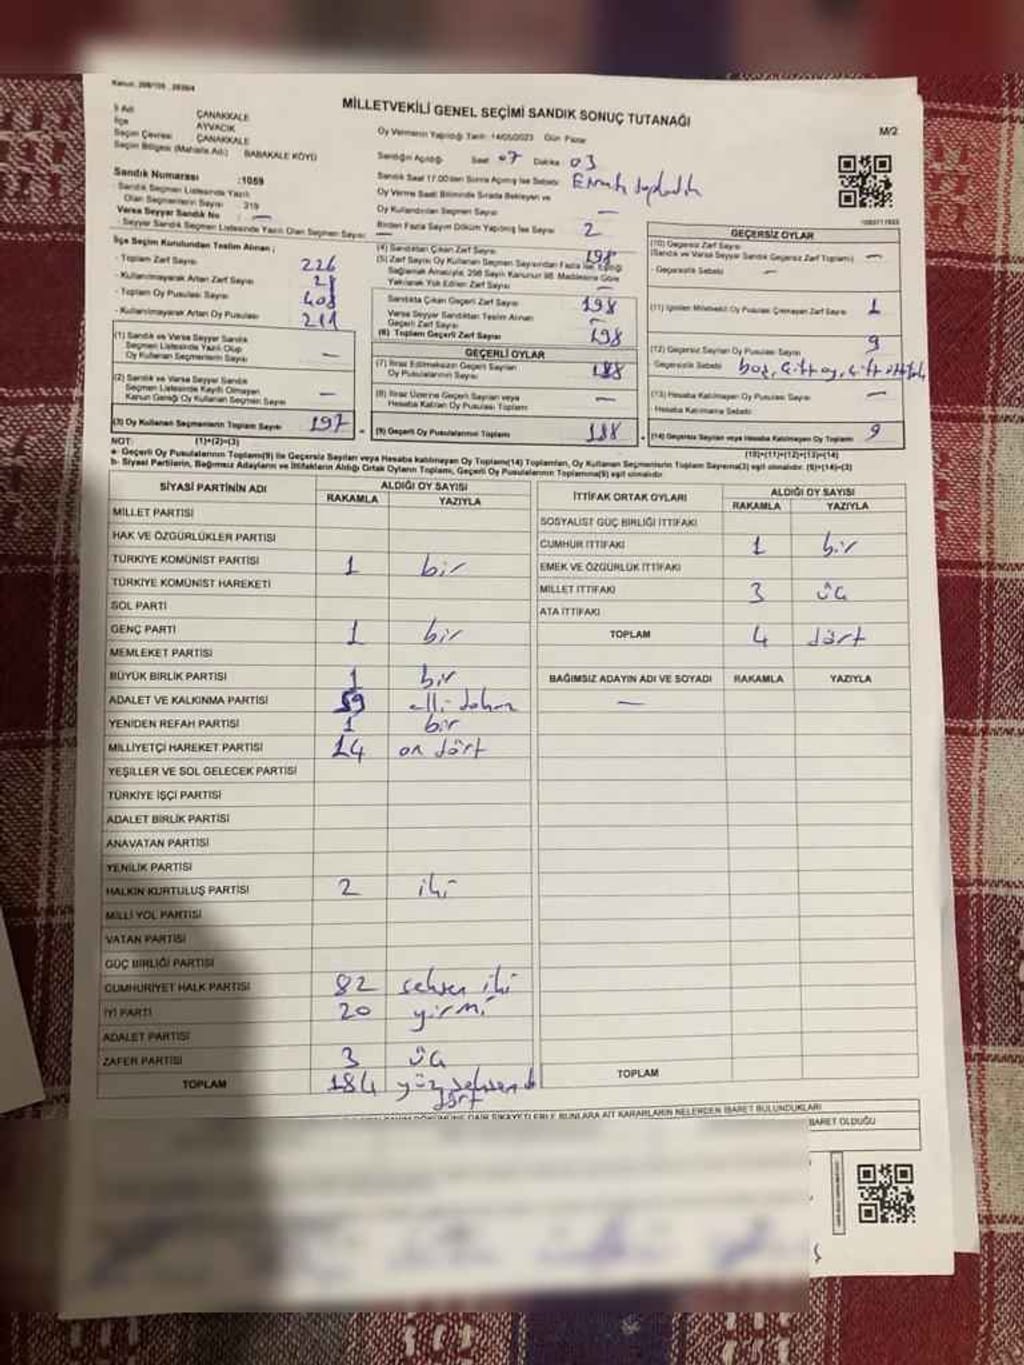 MİLLETVEKİLİ GENEL SEÇİMİ SANDIK SONUÇ TUTANAĞI
M/2
İl Adı ÇANAKKALE
İlçe AYVACIK
Seçim Çevresi ÇANAKKALE
Seçim Bölgesi (Mahalle Adı) BABAKALE KÖYÜ
Oy Vermenin Yapıldığı Tarih 14/05/2023 Gün Pazar
Sandığın Açıldığı Saat 07 Dakika 03
Sandık Saat 17.00'den Sonra Açılmış İse Sebebi
Oy Verme Saati Bitiminde Sırada Bekleyen ve
Oy Kullandırılan Seçmen Sayısı —
Birden Fazla Sayım Döküm Yapılmış İse Sayısı 2
Sandık Numarası :1059
Sandık Seçmen Listesinde Yazılı
Olan Seçmenlerin Sayısı 219
Varsa Seyyar Sandık No : —
Seyyar Sandık Seçmen Listesinde Yazılı Olan Seçmen Sayısı —
İlçe Seçim Kurulundan Teslim Alınan ;
- Toplam Zarf Sayısı 226
- Kullanılmayarak Artan Zarf Sayısı 28
- Toplam Oy Pusulası Sayısı 408
- Kullanılmayarak Artan Oy Pusulası 211
(1) Sandık ve Varsa Seyyar Sandık
Seçmen Listesinde Yazılı Olup
Oy Kullanan Seçmenlerin Sayısı —
(2) Sandık ve Varsa Seyyar Sandık
Seçmen Listesinde Kayıtlı Olmayan
Kanun Gereği Oy Kullanan Seçmen Sayısı —
(3) Oy Kullanan Seçmenlerin Toplam Sayısı 197
(1)+(2)=(3)
(4) Sandıktan Çıkan Zarf Sayısı 198
(5) Zarf Sayısı Oy Kullanan Seçmen Sayısından Fazla İse, Eşitliği
Sağlamak Amacıyla, 298 Sayılı Kanunun 98. Maddesine Göre
Yakılarak Yok Edilen Zarf Sayısı —
Sandıkta Çıkan Geçerli Zarf Sayısı 198
Varsa Seyyar Sandıktan Teslim Alınan
Geçerli Zarf Sayısı —
(6) Toplam Geçerli Zarf Sayısı 198
GEÇERLİ OYLAR
(7) İtiraz Edilmeksizin Geçerli Sayılan
Oy Pusulalarının Sayısı 188
(8) İtiraz Üzerine Geçerli Sayılan veya
Hesaba Katılan Oy Pusulası Toplamı —
(9) Geçerli Oy Pusulalarının Toplamı 188
GEÇERSİZ OYLAR
(10) Geçersiz Zarf Sayısı
(Sandık ve Varsa Seyyar Sandık Geçersiz Zarf Toplamı) —
- Geçersizlik Sebebi —
(11) İçinden Milletvekili Oy Pusulası Çıkmayan Zarf Sayısı 1
(12) Geçersiz Sayılan Oy Pusulası Sayısı 9
- Geçersizlik Sebebi boş, çift oy, çift ittifak
(13) Hesaba Katılmayan Oy Pusulası Sayısı —
- Hesaba Katılmama Sebebi
(14) Geçersiz Sayılan veya Hesaba Katılmayan Oy Toplamı 9
(10)+(11)+(12)+(13)=(14)
NOT:
a- Geçerli Oy Pusulalarının Toplamı(9) ile Geçersiz Sayılan veya Hesaba katılmayan Oy Toplamı(14) Toplamları, Oy Kullanan Seçmenlerin Toplam Sayısına(3) eşit olmalıdır. (9)+(14)=(3)
b- Siyasi Partilerin, Bağımsız Adayların ve İttifakların Aldığı Ortak Oyların Toplamı, Geçerli Oy Pusulalarının Toplamına(9) eşit olmalıdır.
SİYASİ PARTİNİN ADI ALDIĞI OY SAYISI
RAKAMLA YAZIYLA
MİLLET PARTİSİ
HAK VE ÖZGÜRLÜKLER PARTİSİ
TÜRKİYE KOMÜNİST PARTİSİ 1 bir
TÜRKİYE KOMÜNİST HAREKETİ
SOL PARTİ
GENÇ PARTİ 1 bir
MEMLEKET PARTİSİ
BÜYÜK BİRLİK PARTİSİ 1 bir
ADALET VE KALKINMA PARTİSİ 59 elli dokuz
YENİDEN REFAH PARTİSİ 1 bir
MİLLİYETÇİ HAREKET PARTİSİ 14 on dört
YEŞİLLER VE SOL GELECEK PARTİSİ
TÜRKİYE İŞÇİ PARTİSİ
ADALET BİRLİK PARTİSİ
ANAVATAN PARTİSİ
YENİLİK PARTİSİ
HALKIN KURTULUŞ PARTİSİ 2 iki
MİLLİ YOL PARTİSİ
VATAN PARTİSİ
GÜÇ BİRLİĞİ PARTİSİ
CUMHURİYET HALK PARTİSİ 82 seksen iki
İYİ PARTİ 20 yirmi
ADALET PARTİSİ
ZAFER PARTİSİ 3 üç
TOPLAM 184 yüz seksen dört
İTTİFAK ORTAK OYLARI ALDIĞI OY SAYISI
RAKAMLA YAZIYLA
SOSYALİST GÜÇ BİRLİĞİ İTTİFAKI
CUMHUR İTTİFAKI 1 bir
EMEK VE ÖZGÜRLÜK İTTİFAKI
MİLLET İTTİFAKI 3 üç
ATA İTTİFAKI
TOPLAM 4 dört
BAĞIMSIZ ADAYIN ADI VE SOYADI RAKAMLA YAZIYLA
—
TOPLAM
DÖKÜMÜNE DAİR ŞİKAYETLERLE BUNLARA AİT KARARLARIN NELERDEN İBARET BULUNDUKLARI
İBARET OLDUĞU